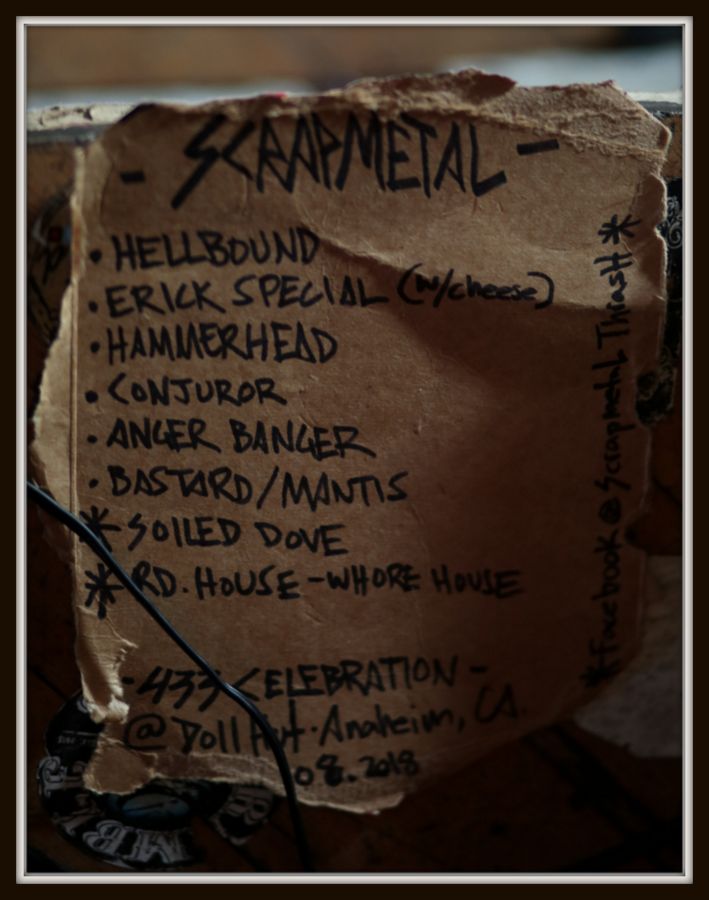 - SCRAPMETAL -
• HELLBOUND
• ERICK SPECIAL (w/cheese)
• HAMMERHEAD
• CONJUROR
• ANGER BANGER
• BASTARD/MANTIS
* SOILED DOVE
* RD. HOUSE - WHORE HOUSE
- 433 CELEBRATION -
@ Doll Hut · Anaheim, CA.
08.2018
*facebook @ Scrapmetal Thrash*